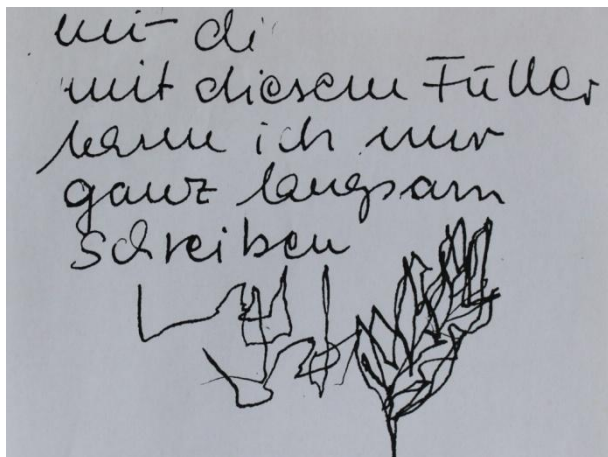 mit di
mit diesem Füller
kann ich nur
ganz langsam
schreiben